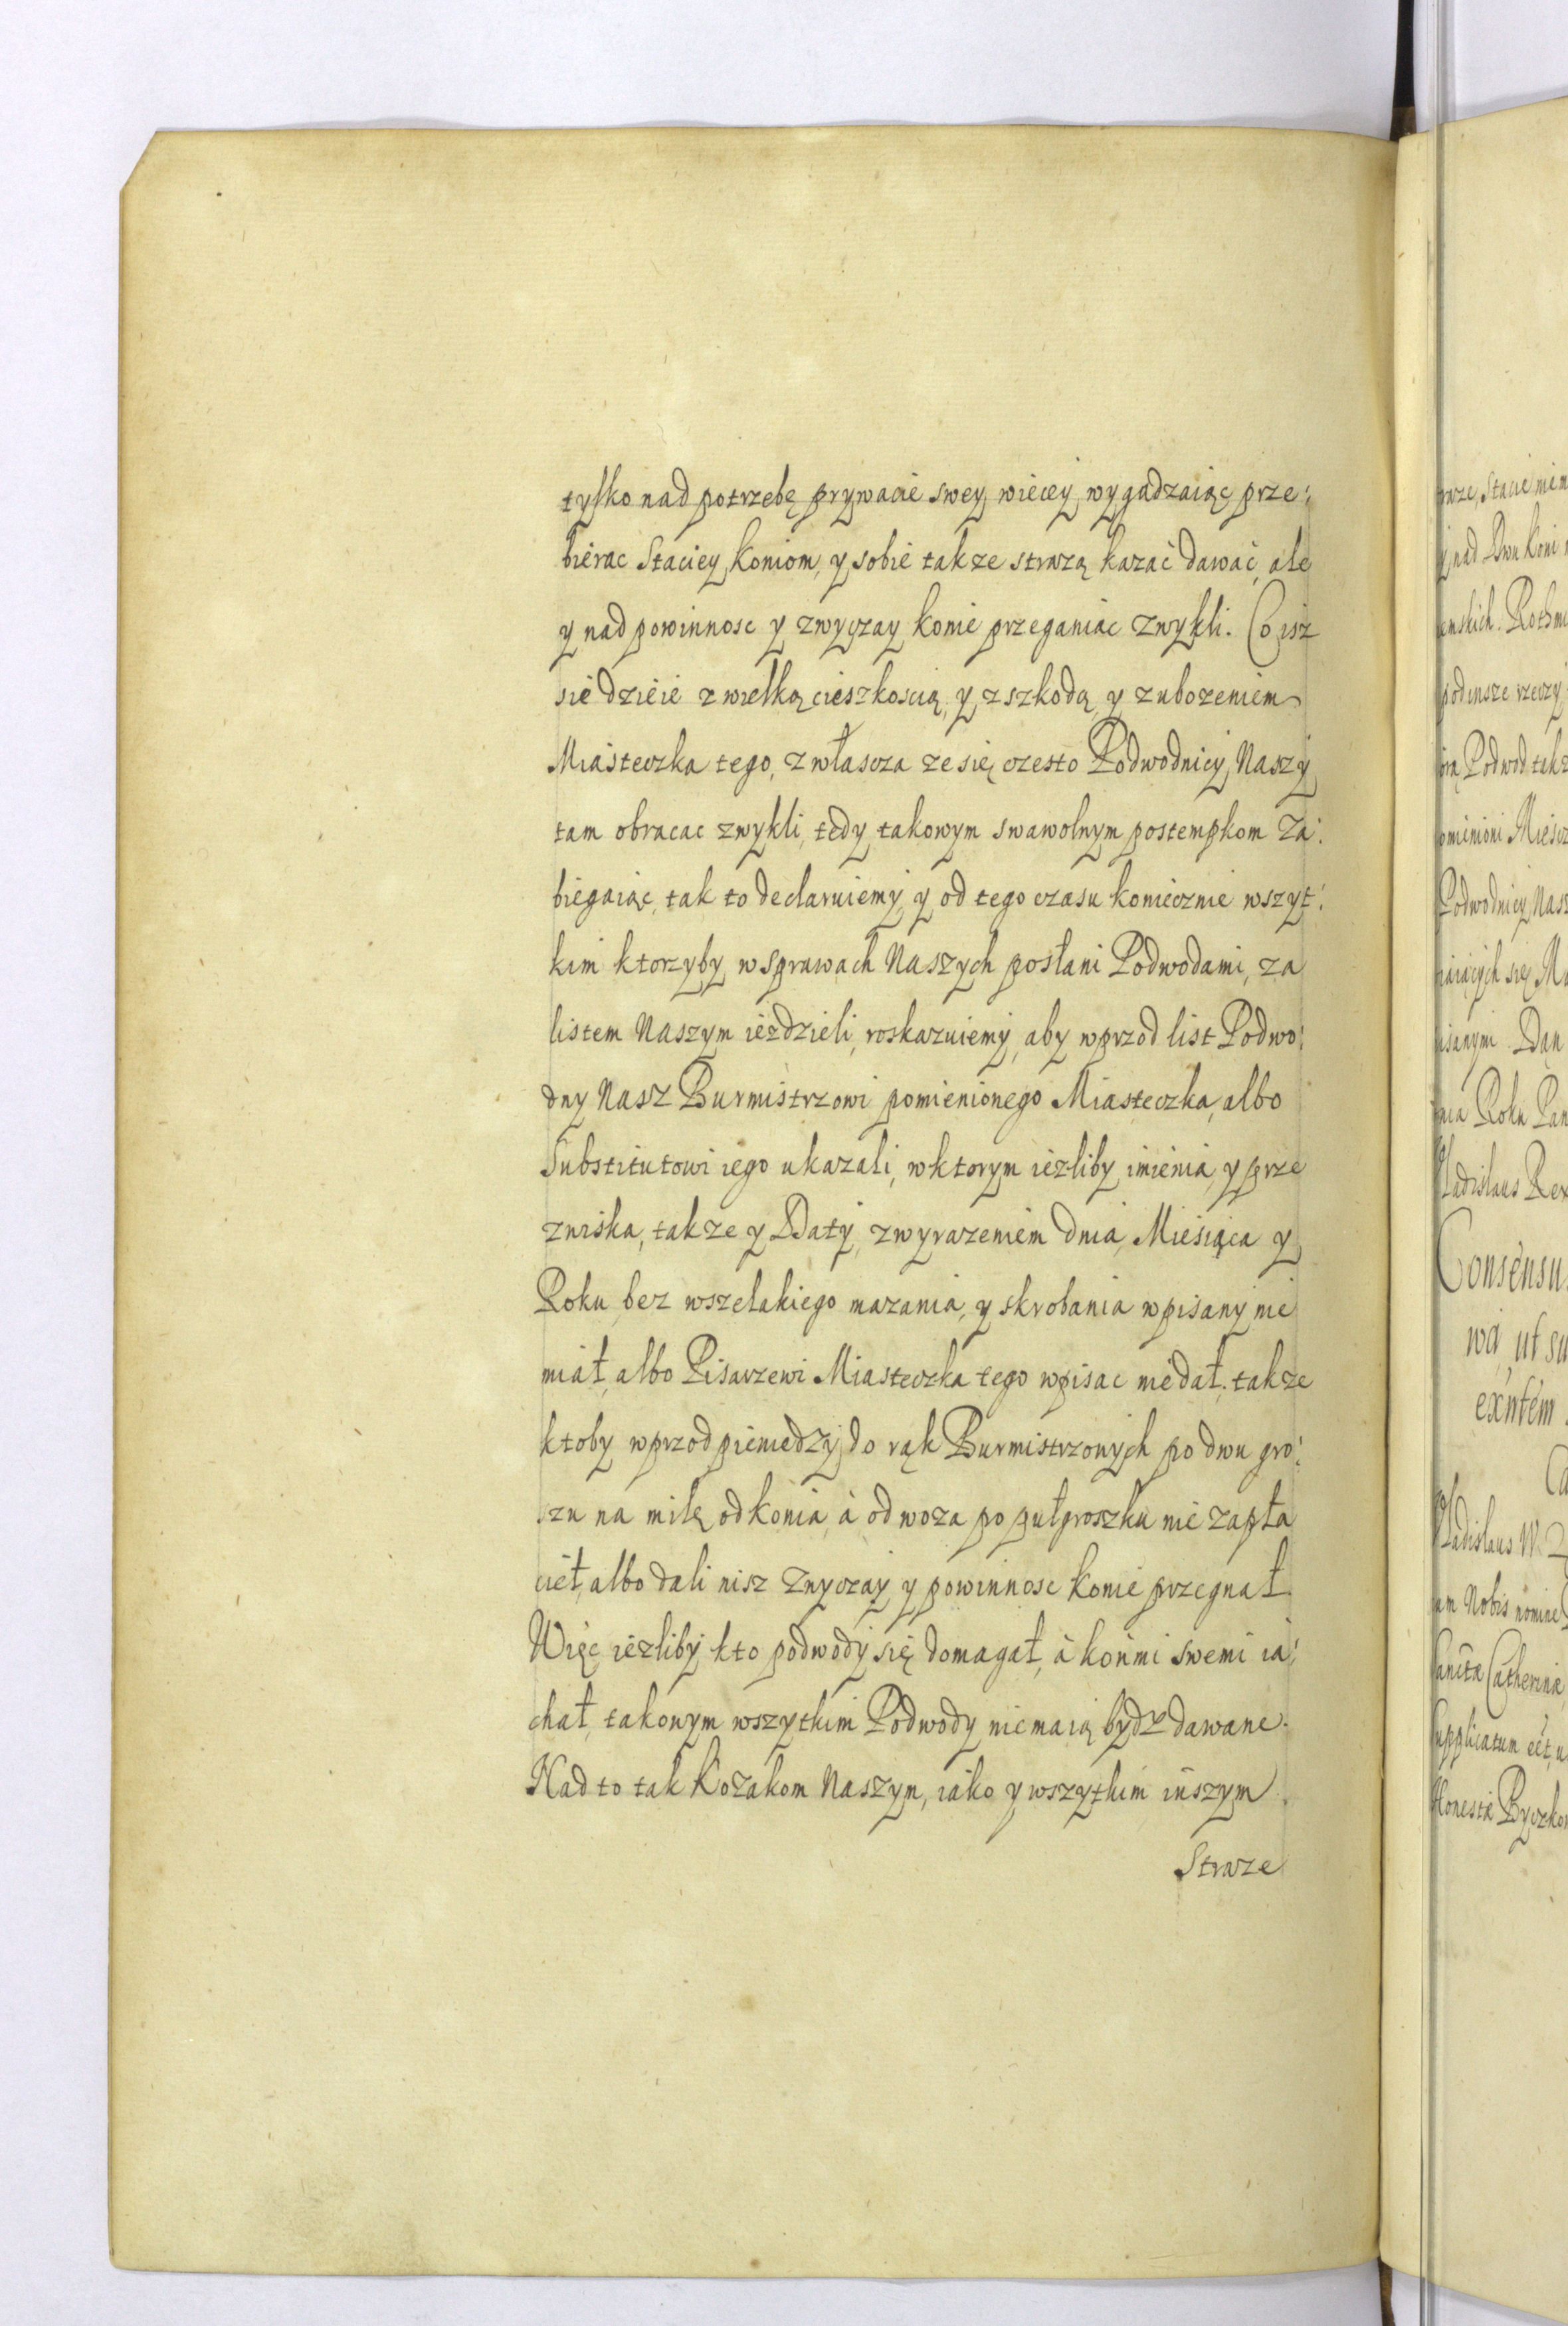 tylko nad potrzebę prywacie swey więcey wygadzaiąc prze:
bierac Staciey koniom, y sobie takze strazą kazać dawać, ale
y nad powinnosc y zwyczay konie przeganiac zwykli. Co isz
sie dzieie z wielką cieszkoscią, y z szkodą, y zubozeniem
Miasteczka tego, zwłascza ze się czesto Podwodnicy Naszy
tam obracac zwykli, tedy takowym swawolnym postempkom za:
biegaiąc, tak to declaruiemy, y od tego czasu koniecznie wszyt:
kim ktorzyby w sprawach Naszych posłani Podwodami, za
listem Naszym iezdzieli, roskazuiemy, aby wprzod list Podwo:
dny Nasz Burmistrzowi pomienionego Miasteczka, albo
Substitutowi iego ukazali, w ktorym iezliby imienia, y prze
zwiska, takze y Daty, z wyrazeniem dnia, Miesiąca y
Roku, bez wszelakiego mazania, y skrobania wpisany nie
miał, albo Pisarzewi Miasteczka tego wpisac nie dał, takze
ktoby wprzod pieniedzy do rąk Burmistrzowych po dwu gro:
szu na milę od konia, à od woza po pułgroszku nie zapła
cieł, albo dali nisz zwyczay y powinnosc konie przegnał
Więc iezliby kto podwody się domagał, à końmi swemi ia:
chał, takowym wszytkim Podwody nie maią bydz dawane.
Nad to tak Kozakom Naszym, iako y wszytkim inszym
Straze
Podwodnicy
Consensu
ut su